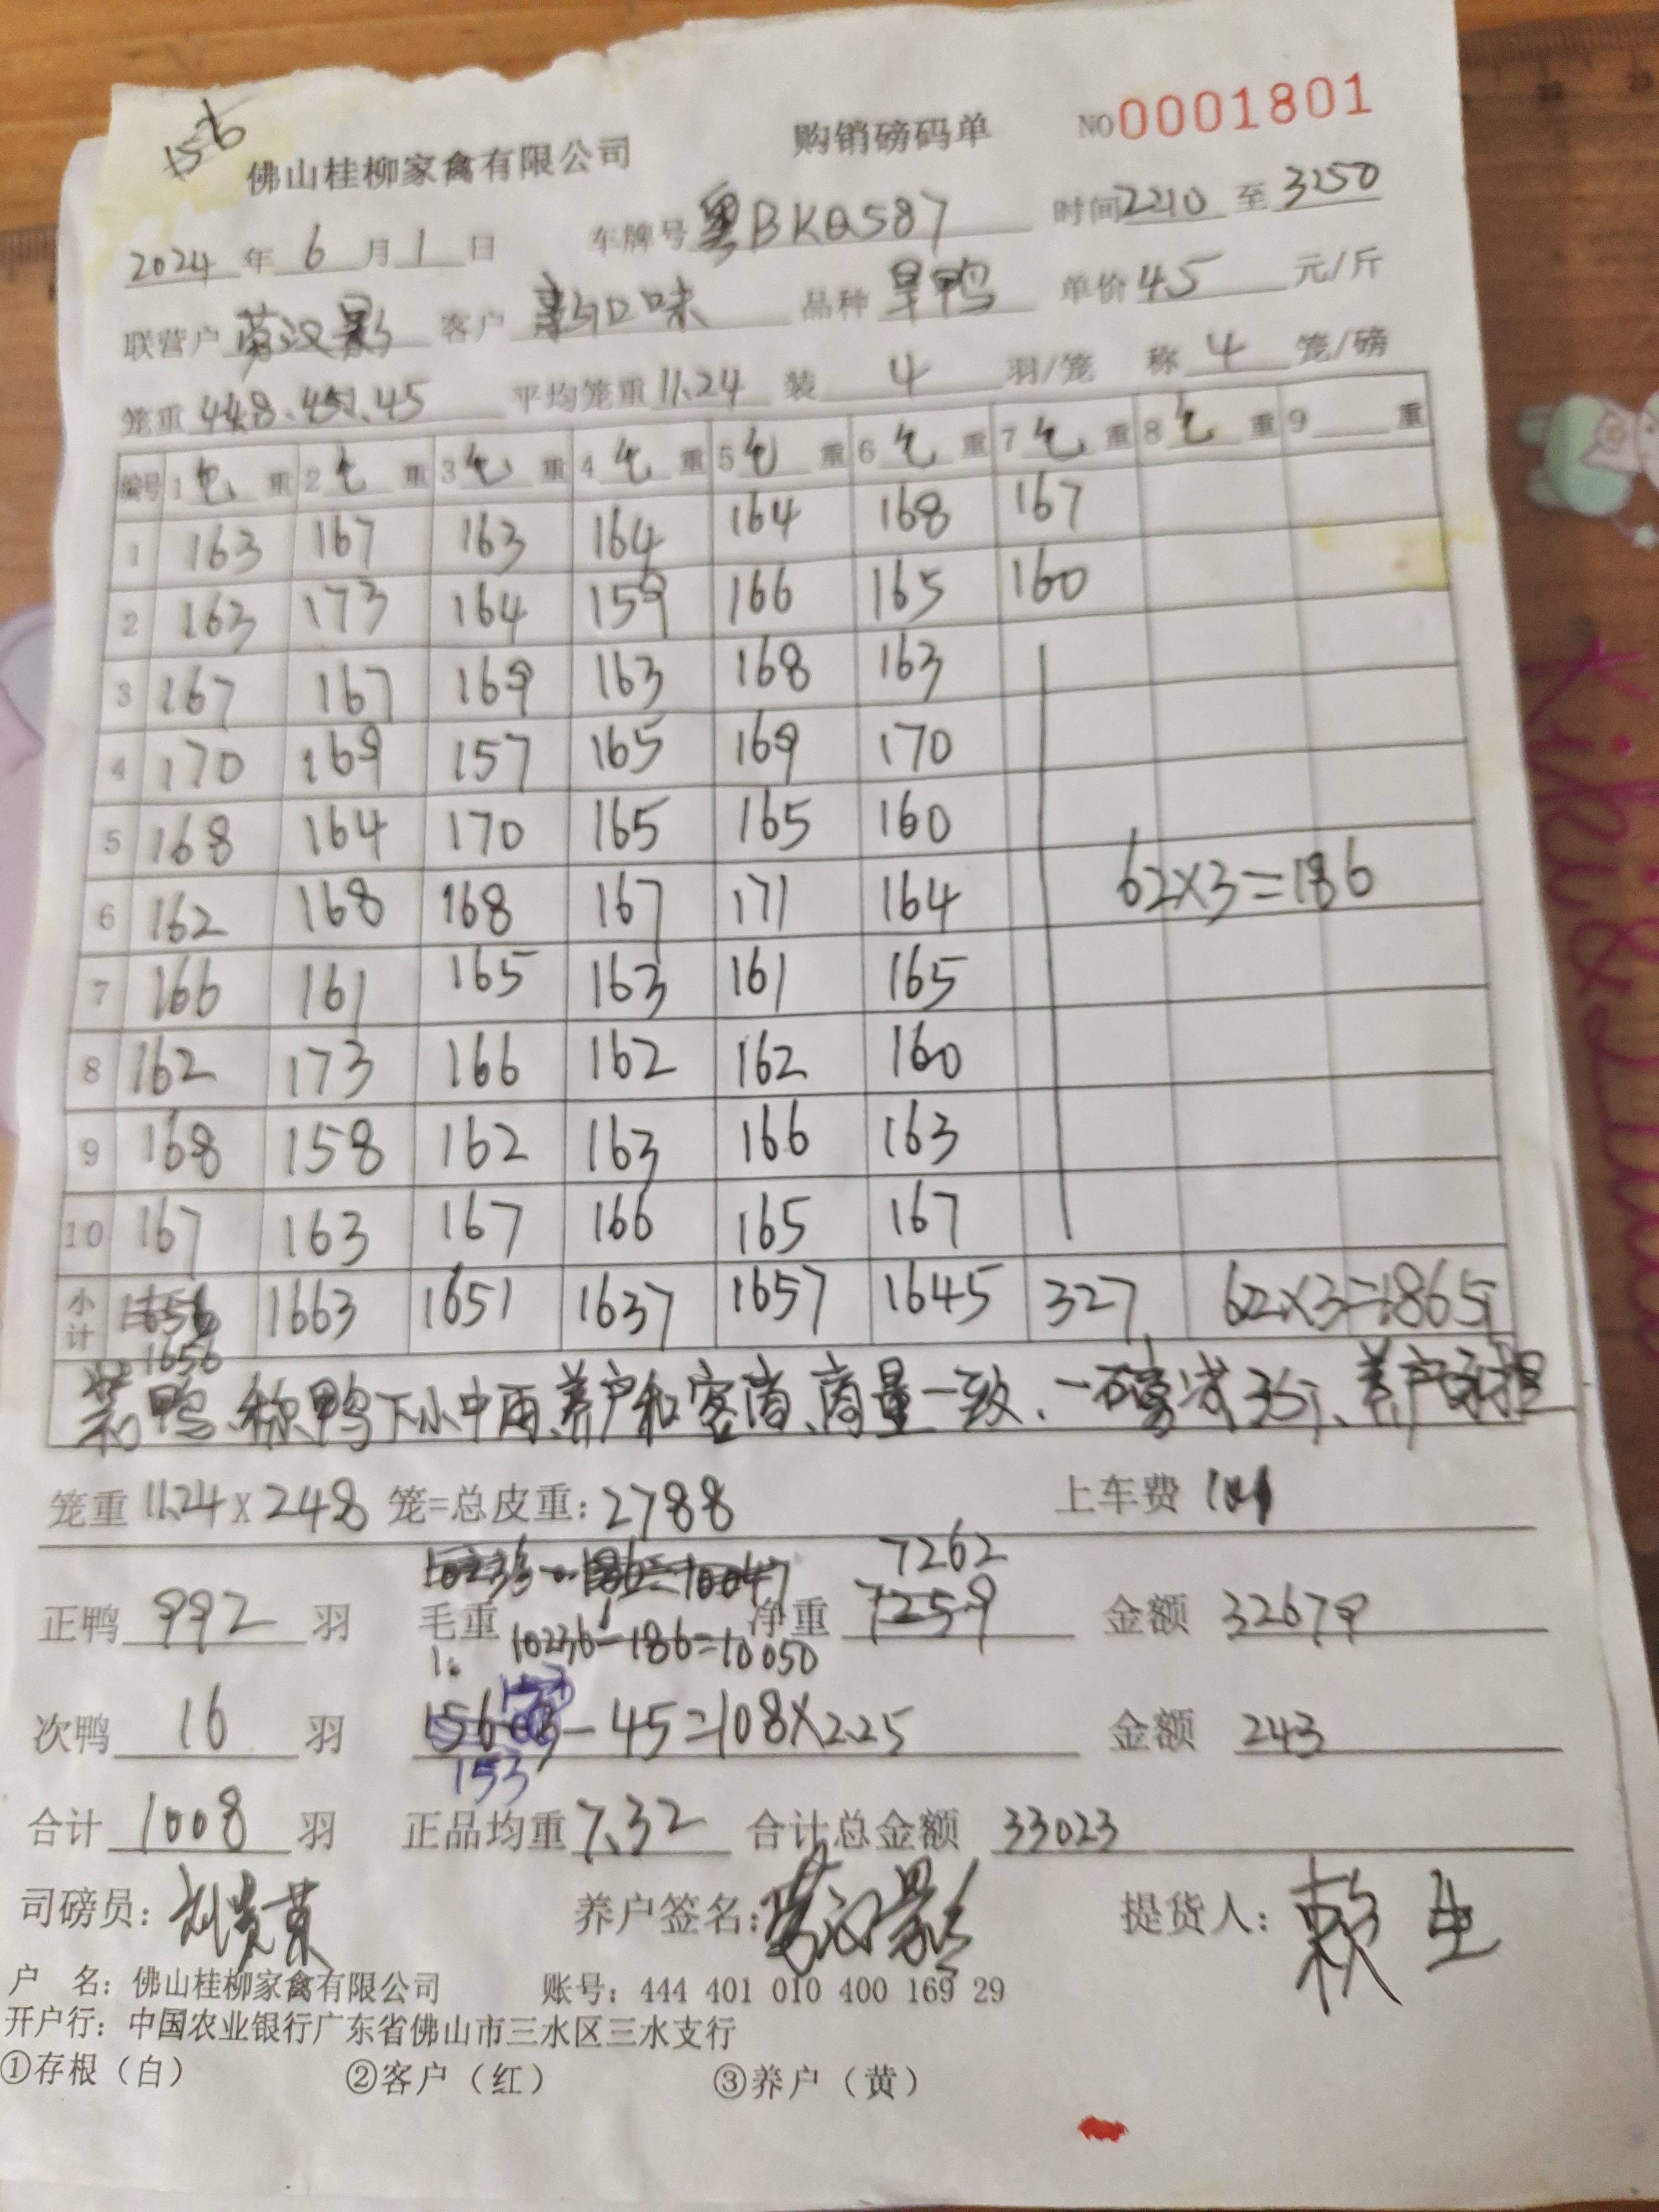 156
佛山桂柳家禽有限公司 购销磅码单 NO0001801
2024年6月1日 车牌号 粤BKQ587 时间2210至3250
联营户 客户 新口味 品种 旱鸭 单价4.5元/斤
笼重 44.8、45、45 平均笼重11.24 装 4 羽/笼 称 4 笼/磅
编号 1毛重 2毛重 3毛重 4毛重 5毛重 6毛重 7毛重 8毛重 9 重
1 163 167 163 164 164 168 167
2 163 173 164 159 166 165 160
3 167 167 169 163 168 163
4 170 169 157 165 169 170
5 168 164 170 165 165 160
6 162 168 168 167 171 164 62×3=186
7 166 161 165 163 161 165
8 162 173 166 162 162 160
9 168 158 162 163 166 163
10 167 163 167 166 165 167
小计 1656 1663 1651 1637 1657 1645 327 62×3=186斤
1656
装鸭、称鸭下小中雨、养户和客商、商量一致、一磅减3斤、养户承担
笼重 11.24×248 笼=总皮重:2788 上车费 101
7262
正鸭 992 羽 毛重 10236-186=10050 净重 7259 金额 32679
次鸭 16 羽 153-45=108×2.25 金额 243
合计 1008 羽 正品均重 7.32 合计总金额 33023
司磅员: 养户签名: 提货人: 赖生
户 名: 佛山桂柳家禽有限公司 账号: 444 401 010 400 169 29
开户行: 中国农业银行广东省佛山市三水区三水支行
①存根(白) ②客户(红) ③养户(黄)